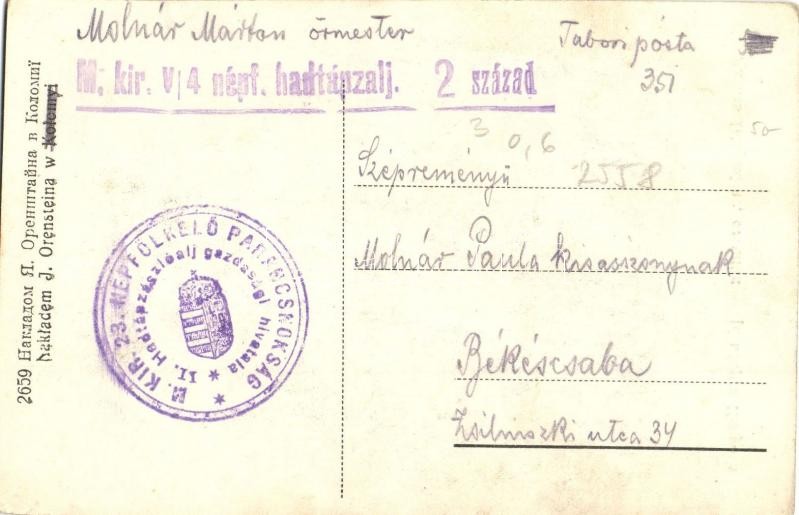 Molnár Márton őrmester
Tábori pósta
351
M. kir. V/4 népf. hadtápzalj. 2 század
50
3 0,6
Szépreményű 2558
Molnár Paula kisasszonynak
Békéscsaba
Zsilinszki utca 34
M. KIR. 23. NÉPFÖLKELŐ PARANCSNOKSÁG *
II. Hadtápzászlóalj gazdasági hivatala *
2659 Накладом Я. Оренштайна в Коломиї
Nakładem J. Orensteina w Kołomyi